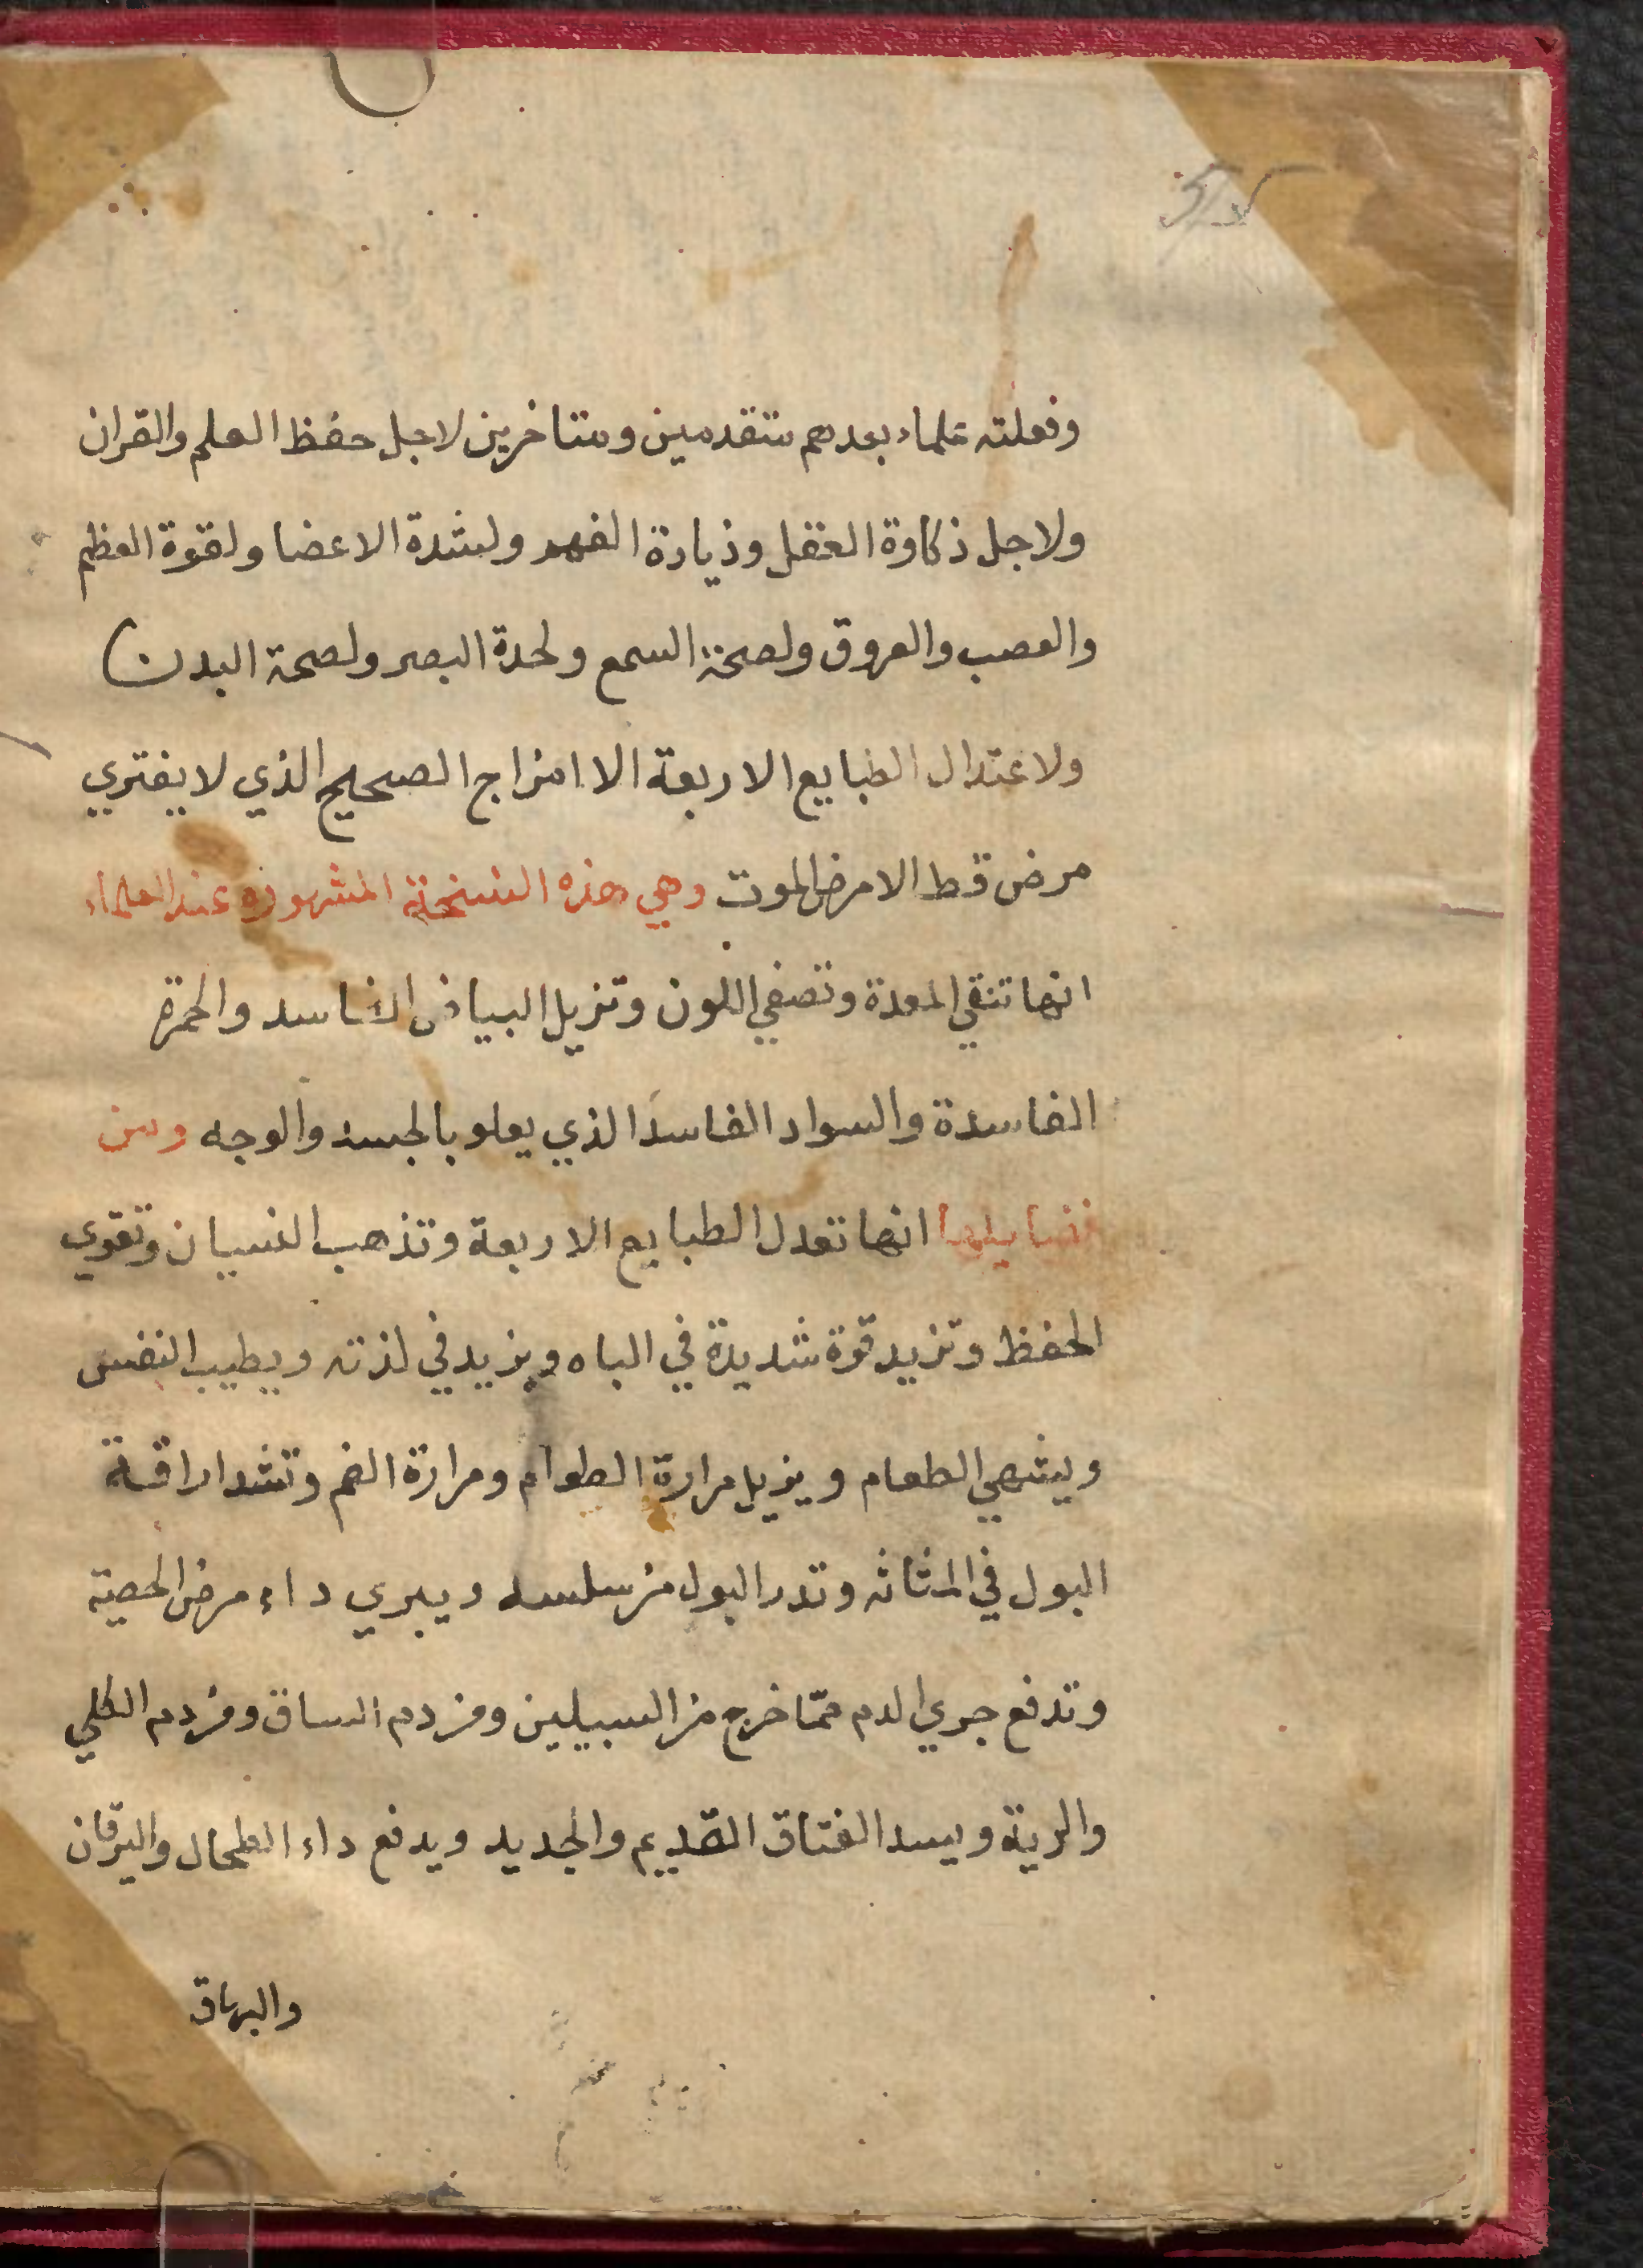 وفعلته علماء بعدهم متقدمين ومتاخرين لاجل حفظ العلم والقران
ولاجل ذكاوة العقل وذيادة الفهم ولشدة الاعضا ولقوة العظم
والعصب والعروق ولصحة السمع ولحدة البصر ولصحة البدن
ولاعتدال الطبايع الاربعة الاامزاج الصحيح الذي لا يفتري
مرض قط الا مرض الموت وهي هذه النسخة المشهوره عند العلماء
انها تنقي المعدة وتصفي اللون وتزيل البياض الفاسد والحمرة
الفاسدة والسواد الفاسد الذي يعلو بالجسد والوجه ومن
فضايلها انها تعدل الطبايع الاربعة وتذهب النسيان وتقوي
الحفظ وتزيد قوة شديدة في الباه ويزيد في لذته ويطيب النفس
ويشهي الطعام ويزيل مرارة الطعام ومرارة الفم وتشد اراقة
البول في المثاثه وتدر البول من سلسه ويبري داء مرض الحصية
وتدفع جري الدم مما خرج من السبيلين ومن دم الساق ومن دم الكلي
والرية ويسد الفتاق القديم والجديد ويدفع داء الطحال واليرقان
والبهاق